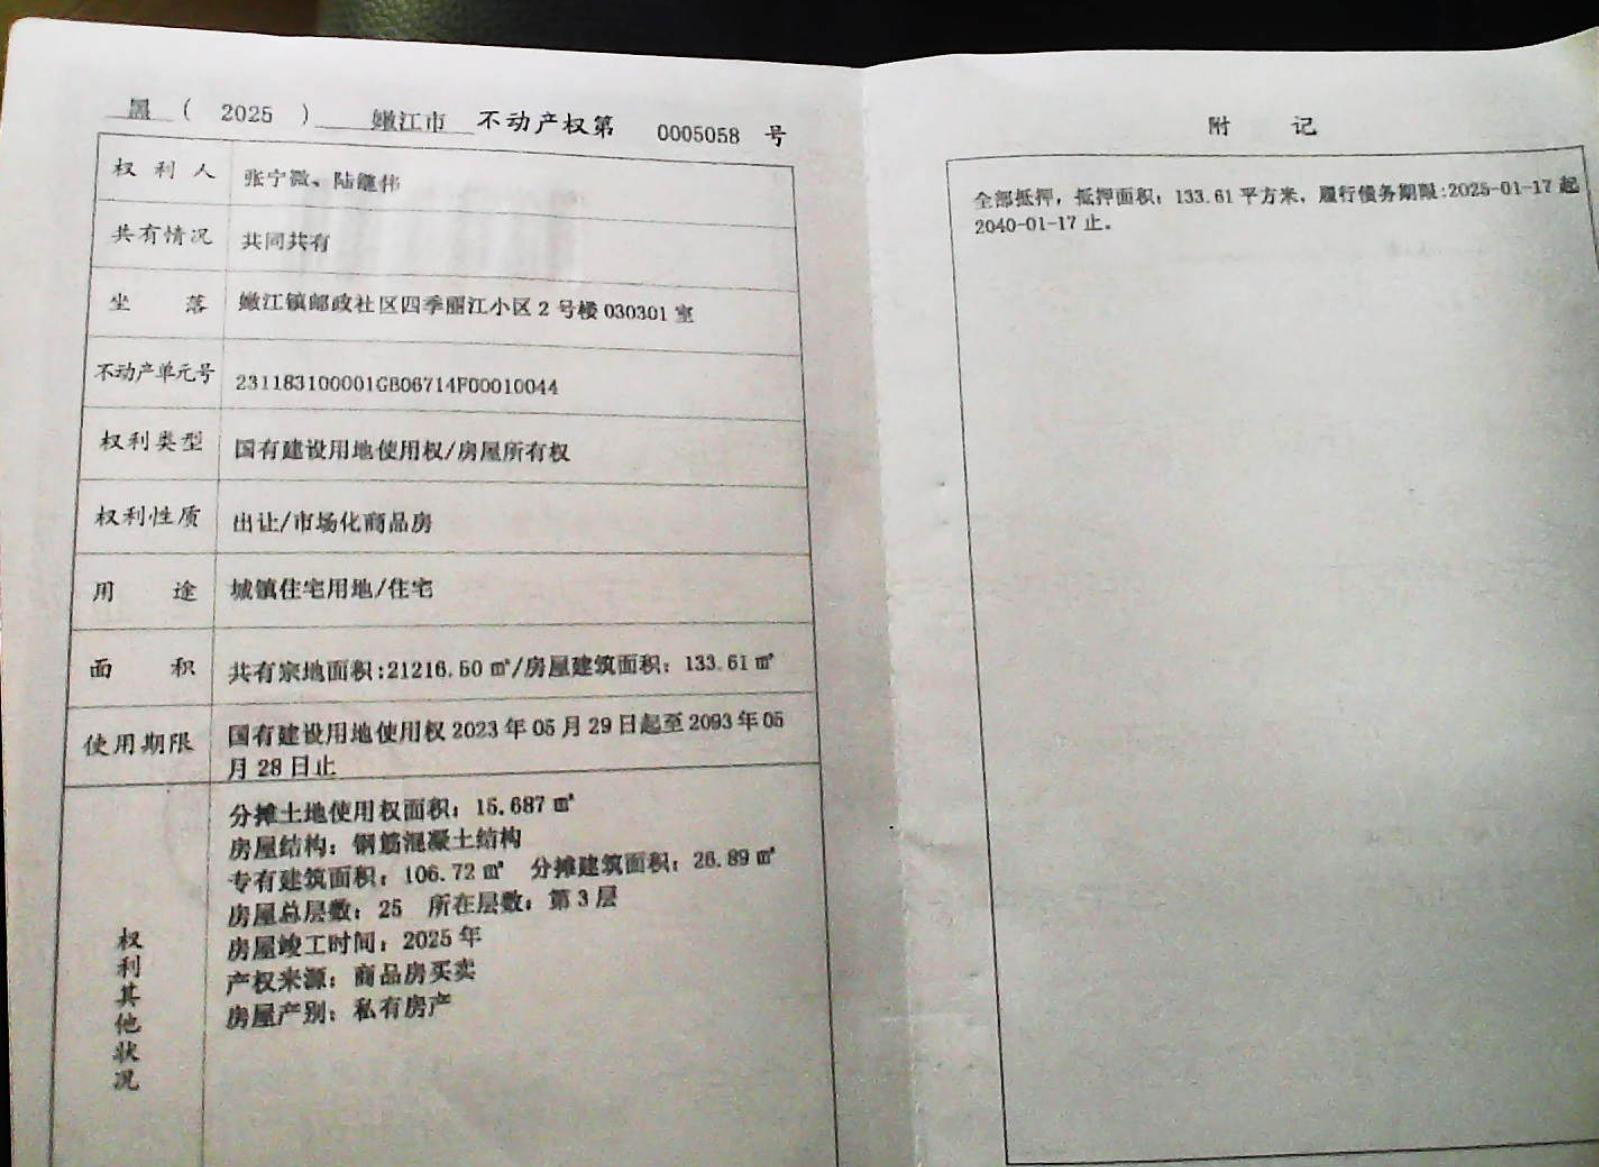 黑 ( 2025 ) 嫩江市 不动产权第 0005058 号
权利人 张宁微、陆继伟
共有情况 共同共有
坐落 嫩江镇邮政社区四季丽江小区 2 号楼 030301 室
不动产单元号 231183100001GB06714F00010044
权利类型 国有建设用地使用权/房屋所有权
权利性质 出让/市场化商品房
用途 城镇住宅用地/住宅
面积 共有宗地面积:21216.50 ㎡/房屋建筑面积: 133.61 ㎡
使用期限 国有建设用地使用权 2023 年 05 月 29 日起至 2093 年 05
月 28 日止
权利其他状况
分摊土地使用权面积: 15.687 ㎡
房屋结构: 钢筋混凝土结构
专有建筑面积: 106.72 ㎡ 分摊建筑面积: 26.89 ㎡
房屋总层数: 25 所在层数: 第 3 层
房屋竣工时间: 2025 年
产权来源: 商品房买卖
房屋产别: 私有房产
附记
全部抵押, 抵押面积: 133.61 平方米, 履行债务期限:2025-01-17 起
2040-01-17 止.